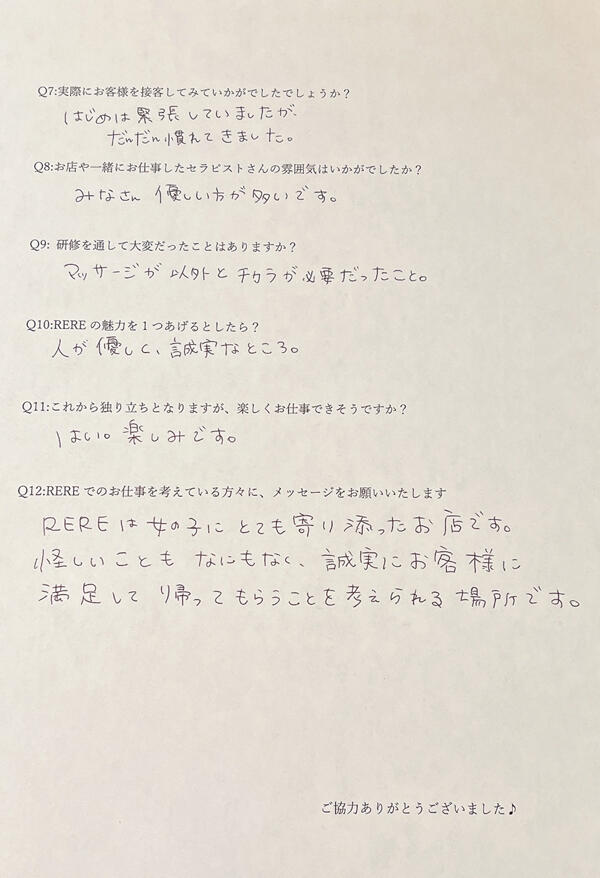 Q7:実際にお客様を接客してみていかがでしたでしょうか？
はじめは緊張していましたが、
だんだん慣れてきました。
Q8:お店や一緒にお仕事したセラピストさんの雰囲気はいかがでしたか？
みなさん 優しい方が多いです。
Q9: 研修を通して大変だったことはありますか？
マッサージが 以外と チカラが必要だったこと。
Q10:RERE の魅力を 1 つあげるとしたら？
人が 優しく、誠実なところ。
Q11:これから独り立ちとなりますが、楽しくお仕事できそうですか？
はい。楽しみです。
Q12:RERE でのお仕事を考えている方々に、メッセージをお願いいたします
RERE は 女の子に とても 寄り添ったお店です。
怪しいことも なにもなく、誠実にお客様に
満足して 帰って もらうことを考えられる場所です。
ご協力ありがとうございました♪